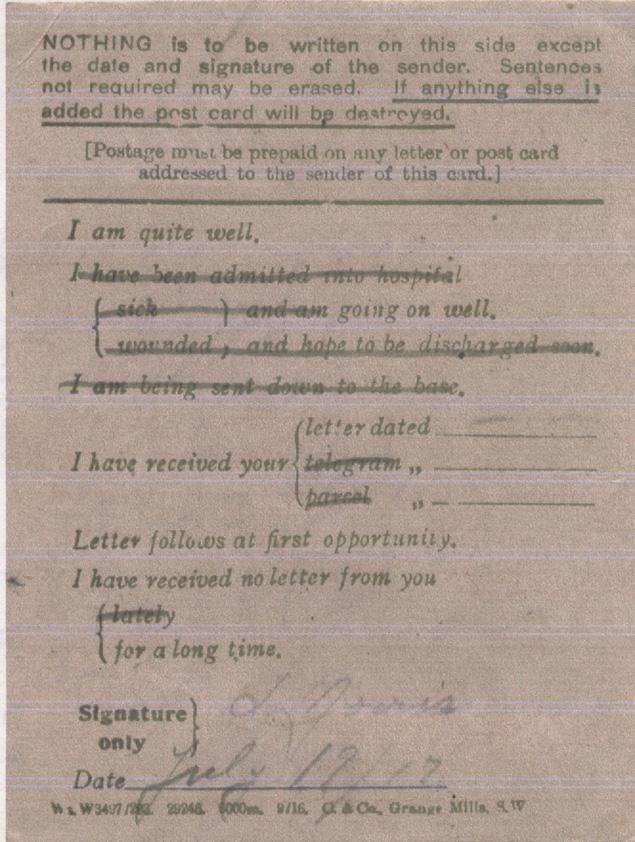 NOTHING is to be written on this side except
the date and signature of the sender. Sentences
not required may be erased. If anything else is
added the post card will be destroyed.
[Postage must be prepaid on any letter or post card
addressed to the sender of this card.]
I am quite well.
I have been admitted into hospital
sick and am going on well.
wounded and hope to be discharged soon.
I am being sent down to the base.
letter dated
I have received your telegram „
parcel „
Letter follows at first opportunity.
I have received no letter from you
lately
for a long time.
Signature
only
Date July 19/17
Wt. W3497/293. 29246. 6000m. 9/16. C. & Co., Grange Mills, S.W